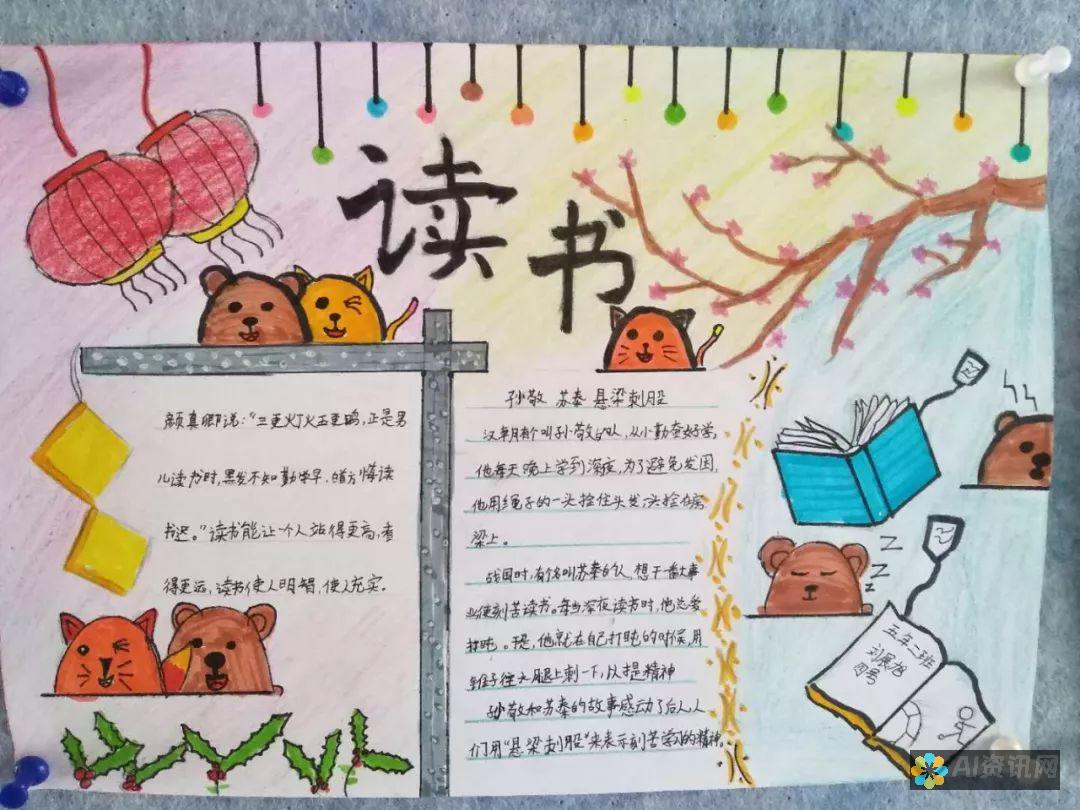 读书
颜真卿说：“三更灯火五更鸡，正是男
儿读书时，黑发不知勤学早，白首方悔读
书迟。”读书能让一个人站得更高，看
得更远，读书使人明智，使人充实。
孙敬 苏秦 悬梁刺股
汉朝有个叫孙敬的人，从小勤奋好学，
他每天晚上学到深夜，为了避免发困，
他用绳子的一头拴住头发，头拴在房
梁上。
战国时，有个名叫苏秦的人，想干一番大事
业便刻苦读书。每当深夜读书时，他总爱
打盹。于是，他就在自己打盹的时候，用
锥子往大腿上刺一下，以提精神
孙敬和苏秦的故事感动了后人，人
们用“悬梁刺股”来表示刻苦学习的精神。
Z
Z
Z
五年二班
刘展旭
四号
AI资讯网